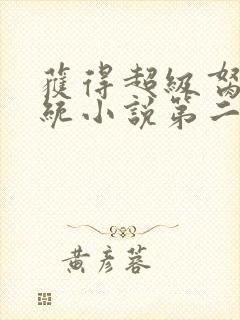 獲得超級
統小說第二
黃彥蓉